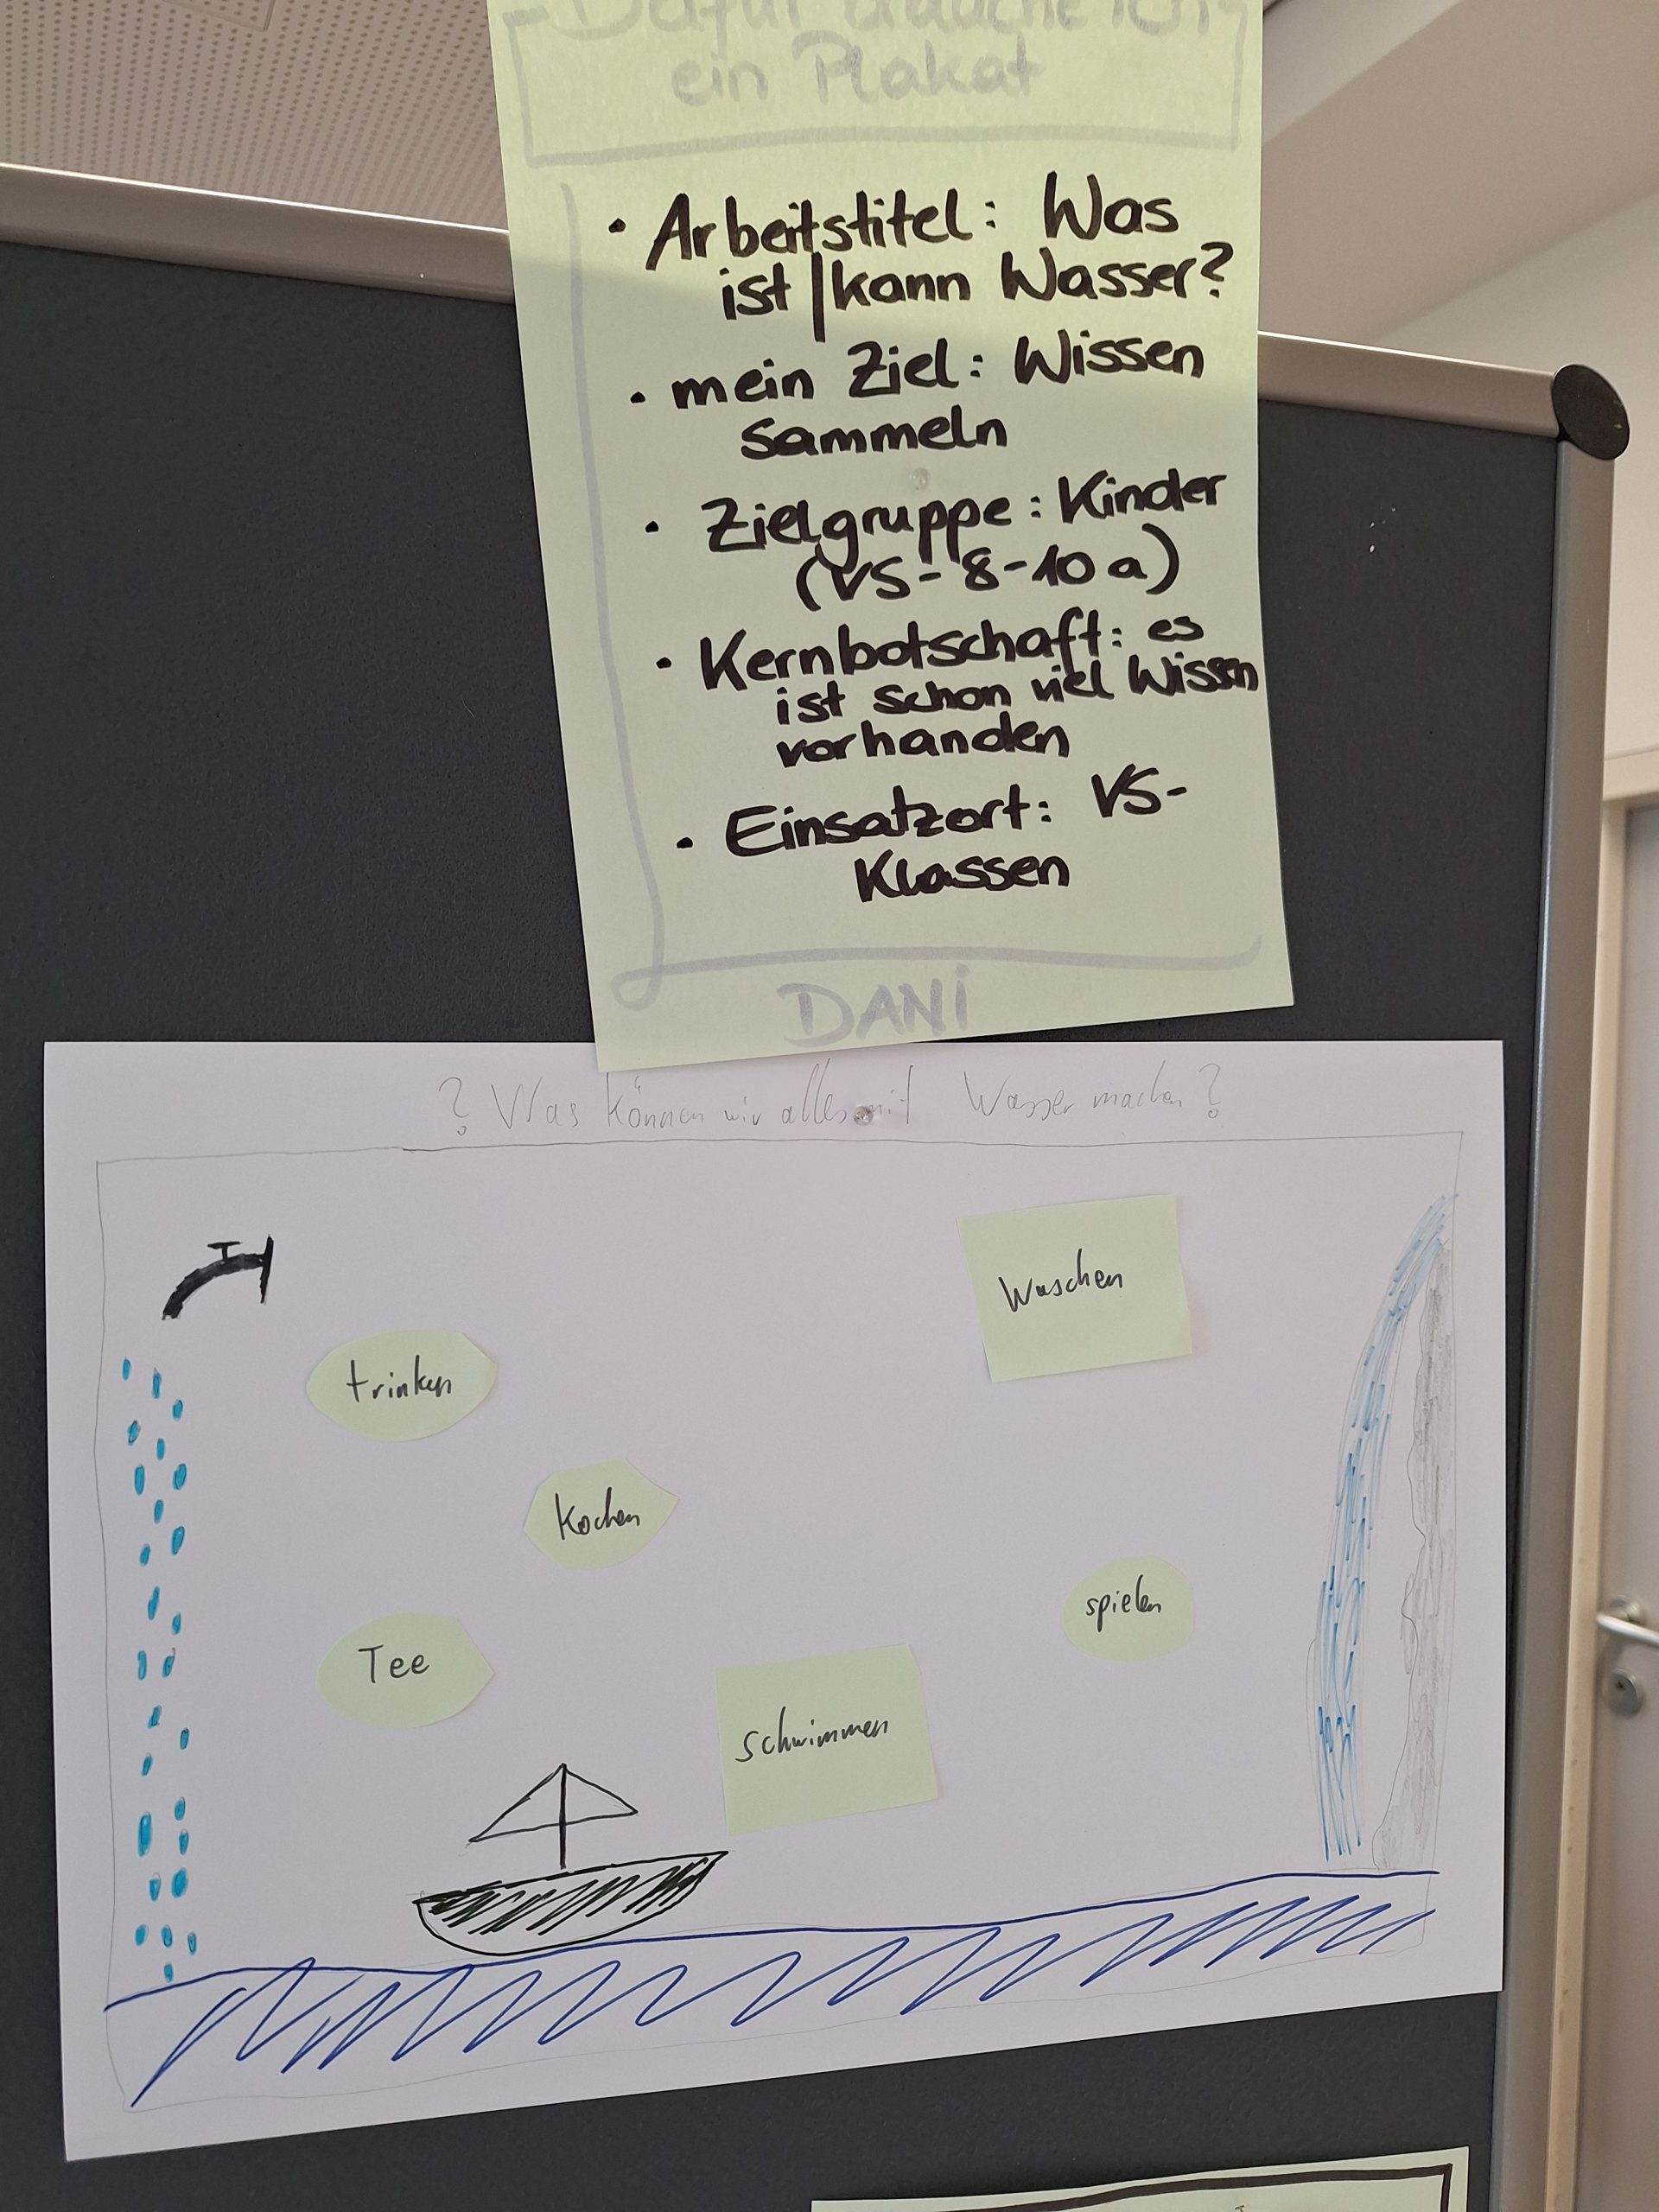 - Dafür brauche ich
ein Plakat
• Arbeitstitel: Was
ist/kann Wasser?
• mein Ziel: Wissen
sammeln
• Zielgruppe: Kinder
(VS-8-10a)
• Kernbotschaft: es
ist schon viel Wissen
vorhanden
• Einsatzort: VS-
Klassen
DANI
? Was können wir alles mit Wasser machen?
Waschen
trinken
Kochen
spielen
Tee
schwimmen